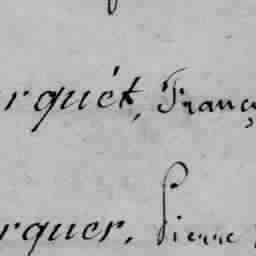 rquét, Franç
rquer, Pierre